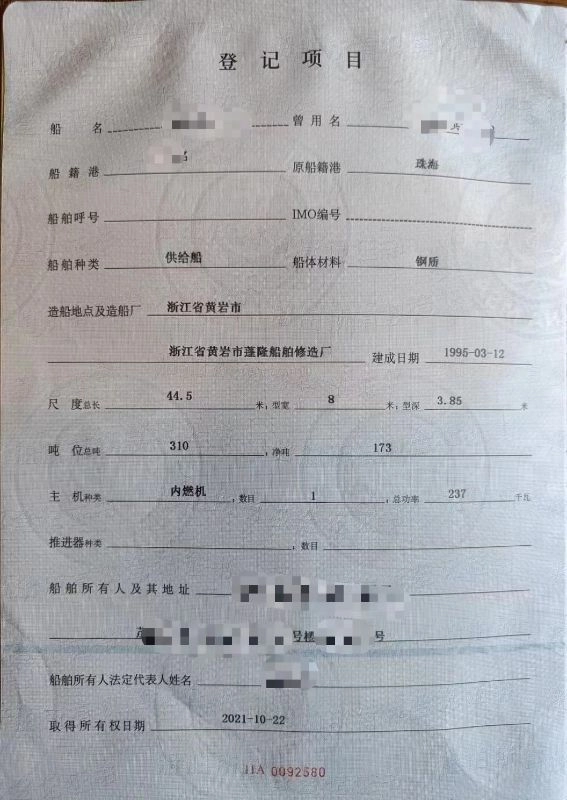 登记项目
船名 曾用名
船籍港 名 原船籍港 珠海
船舶呼号 IMO编号
船舶种类 供给船 船体材料 钢质
造船地点及造船厂 浙江省黄岩市
浙江省黄岩市蓬隆船舶修造厂 建成日期 1995-03-12
尺度总长 44.5 米，型宽 8 米，型深 3.85 米
吨位总吨 310 ，净吨 173
主机种类 内燃机 ，数目 1 ，总功率 237 千瓦
推进器种类 ，数目
船舶所有人及其地址
号楼 号
船舶所有人法定代表人姓名
取得所有权日期 2021-10-22
IIA 0092580